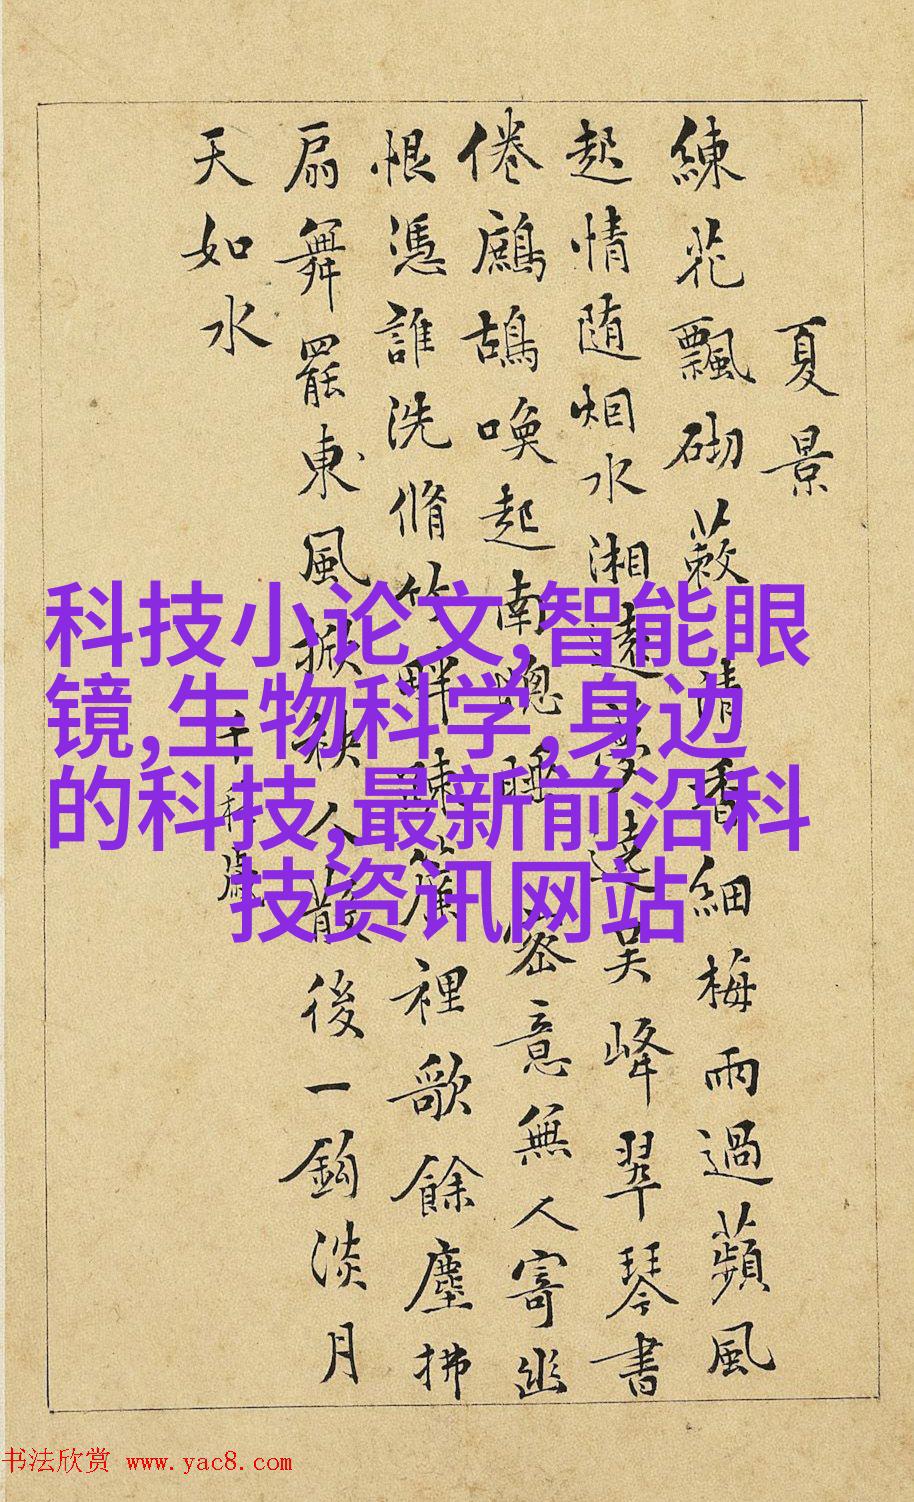 夏景
練花飄砌蔌清香細梅雨過蘋風
起情随烟水湘遠夢遶吴峰翠琴書
倦鷓鴣喚起南窻睡密意無人寄幽
恨憑誰洗脩竹畔疎簾裡歌餘塵拂
扇舞罷東風掀袂人散後一鈎淡月
天如水
千秋歲
科技小论文,智能眼
镜,生物科学,身边
的科技,最新前沿科
技资讯网站
书法欣赏 www.yac8.com